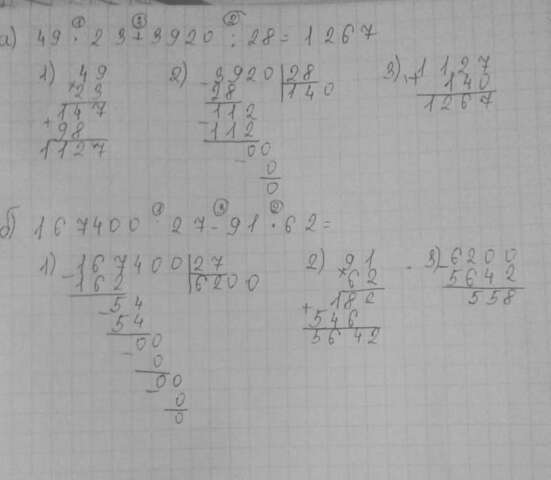 ① ③ ②
а) 49 · 23 + 3920 : 28 = 1267
1) 49
× 23
147
+ 98
1127
2) 3920 | 28
- 28 | 140
112
- 112
00
- 0
0
3) 1127
+ 140
1267
① ③ ②
б) 167400 : 27 - 91 · 62 =
1) 167400 | 27
- 162 | 6200
54
- 54
00
- 0
00
- 0
0
2) 91
× 62
182
+ 546
5642
3) - 6200
5642
558